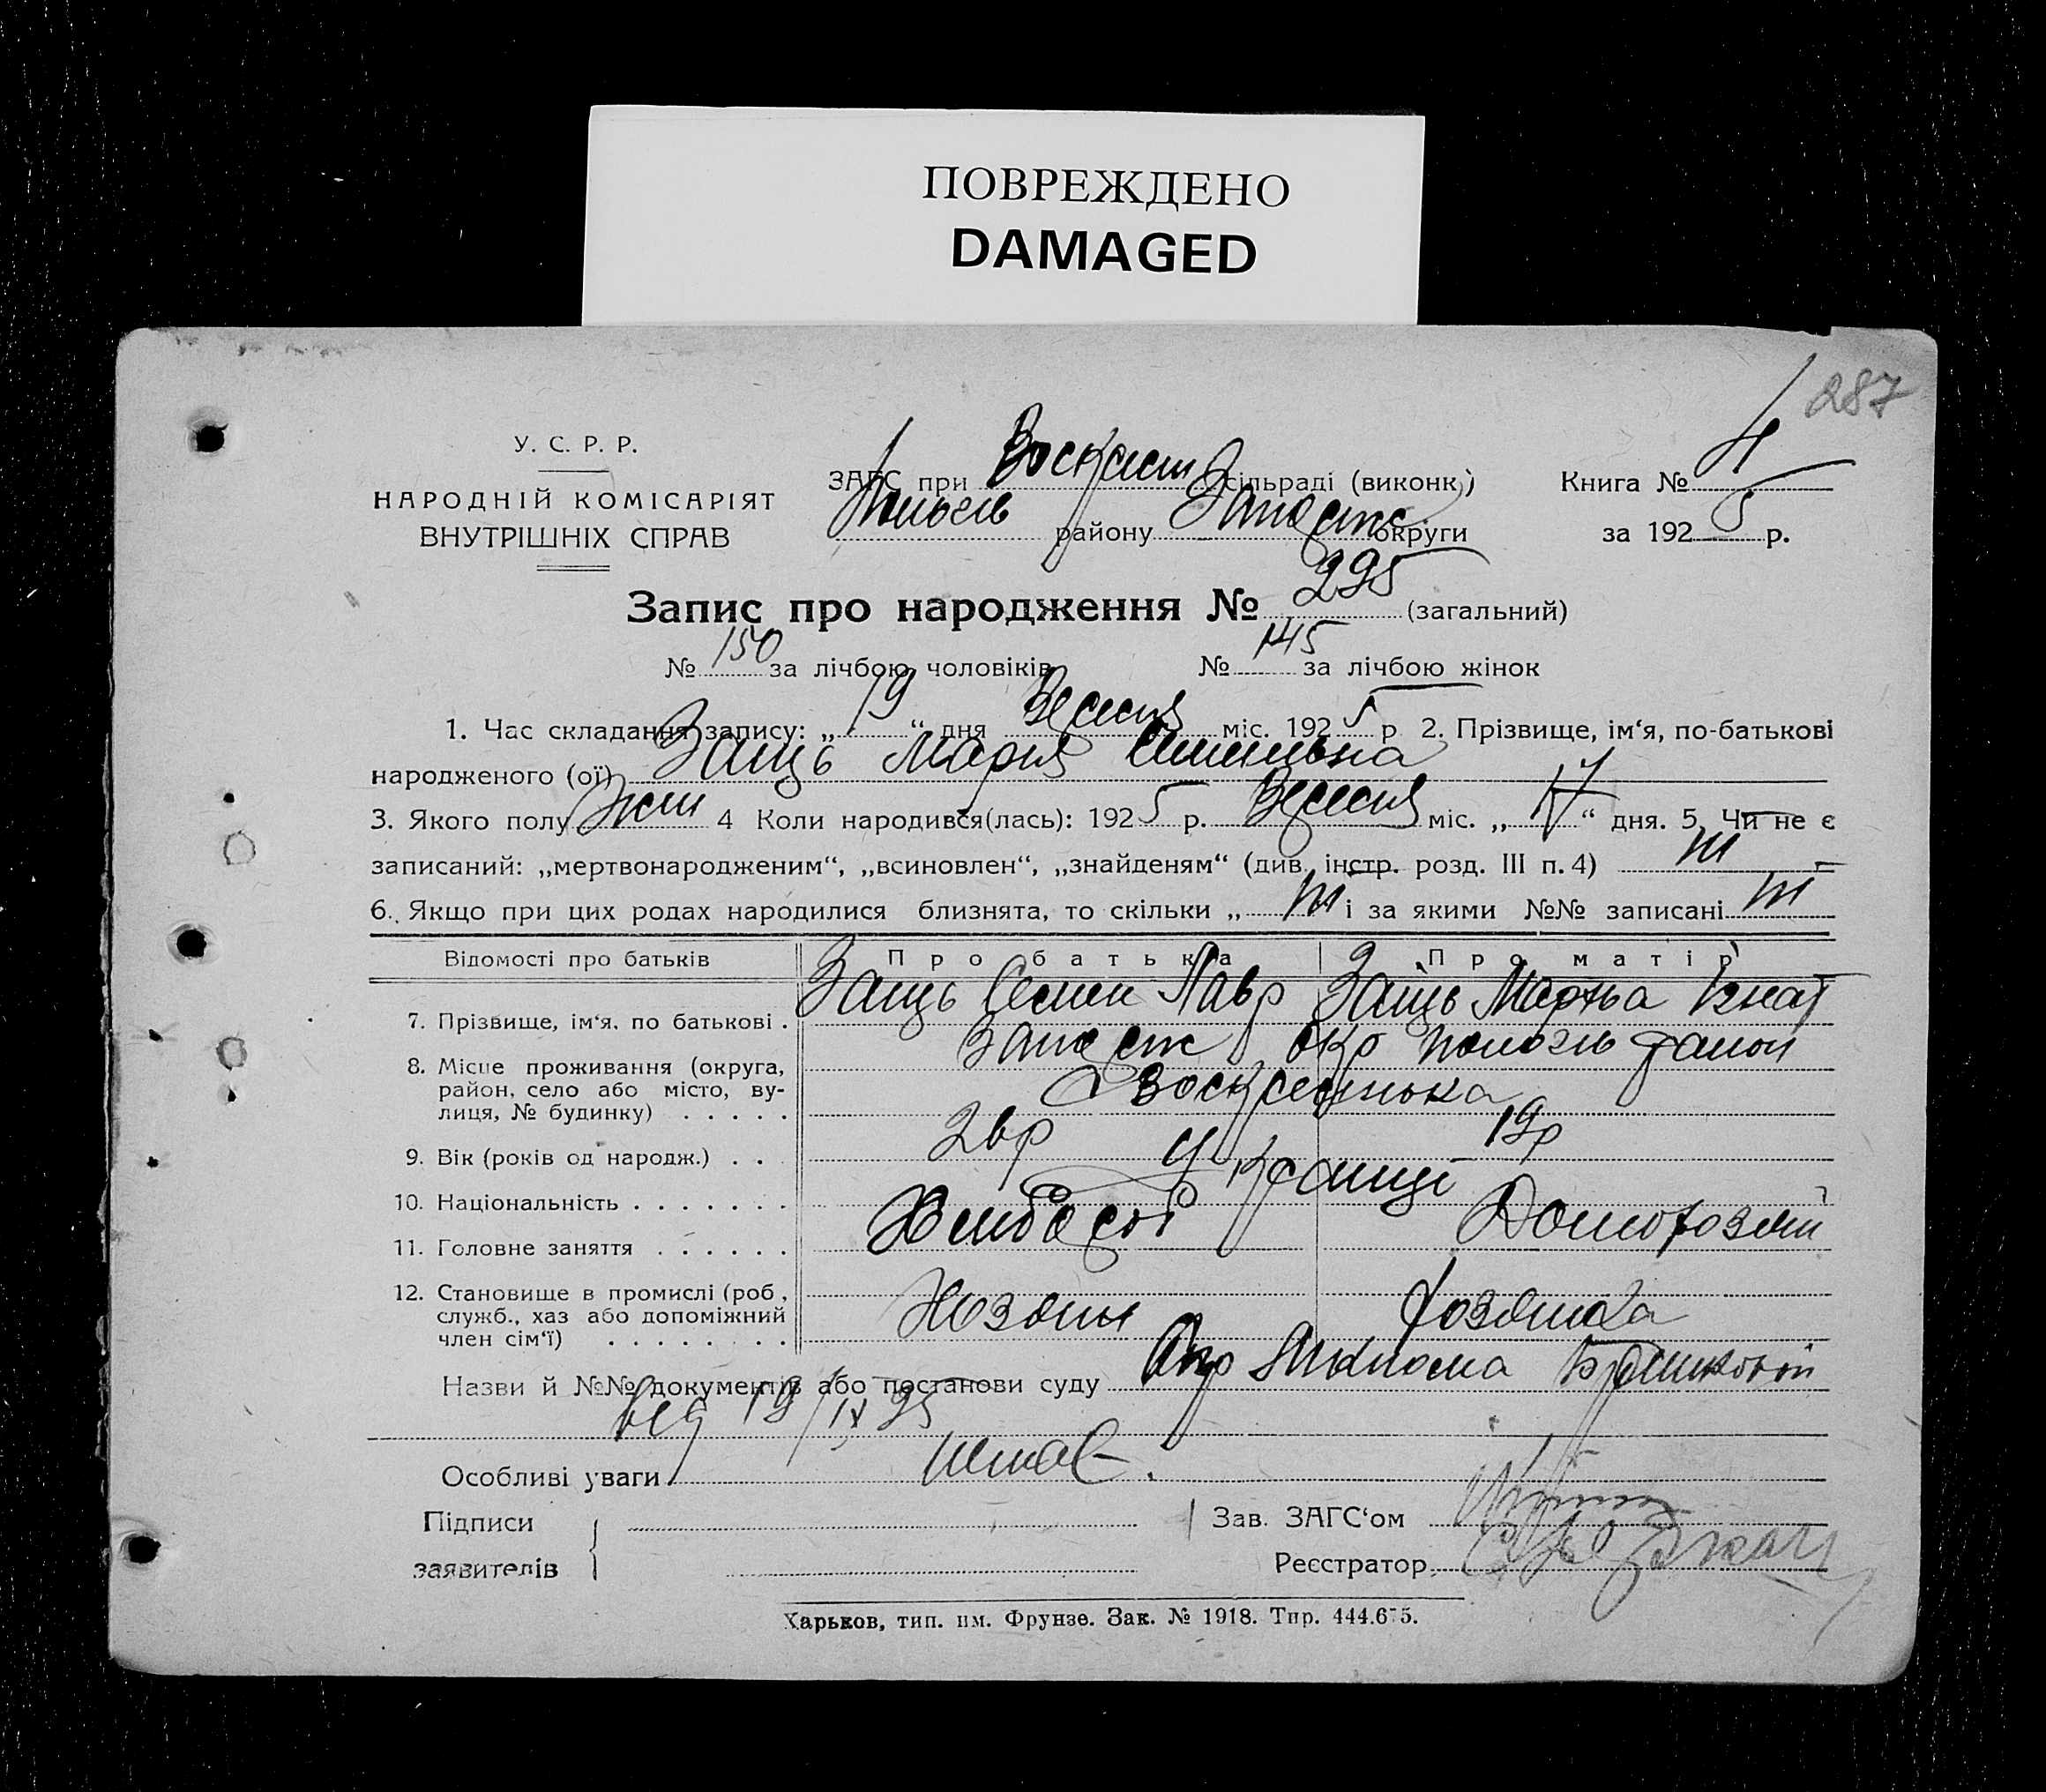 ПОВРЕЖДЕНО
DAMAGED
287
У. С. Р. Р.
НАРОДНІЙ КОМІСАРІЯТ
ВНУТРІШНІХ СПРАВ
ЗАГС при Воскресен сільраді (виконк)
району Запоріж округи
Книга №
за 1925 р.
Запис про народження № 295 (загальний)
№ 150 за лічбою чоловіків № 145 за лічбою жінок
1. Час складання запису: „19“ дня Вересня міс. 1925 р 2. Прізвище, ім‘я, по-батькові
народженого (ої) Заиць Мария Семеновна
3. Якого полу жен 4 Коли народився(лась): 1925 р. Вересня міс. „17“ дня. 5. Чи не є
записаний: „мертвонародженим“, „всиновлен“, „знайденям“ (див. інстр. розд. III п. 4) ні
6. Якщо при цих родах народилися близнята, то скільки „ ні і за якими №№ записані ні
Відомості про батьків Про батька Про матір
7. Прізвище, ім‘я, по батькові . Заиць Семен Лавр Заиць Марфа Ігнат
8. Місце проживання (округа,
район, село або місто, ву-
лиця, № будинку) . . . . .
Запоріж окр Пологів район
Воскресенька
9. Вік (років од народж.) . . 19р
10. Національність . . . . . . . Українці
11. Головне заняття . . . . . . Хлибороб Домохозяй
12. Становище в промислі (роб,
служб., хаз або допоміжний
член сім‘ї) . . . . . . . .
Хозяин Хозяйка
Назви й №№ документів або постанови суду
19/IX 25
Особливі уваги немає.
Підписи
заявителів
Зав. ЗАГС‘ом
Реєстратор
Харьков, тип. им. Фрунзе. Зак. № 1918. Тир. 444.675.